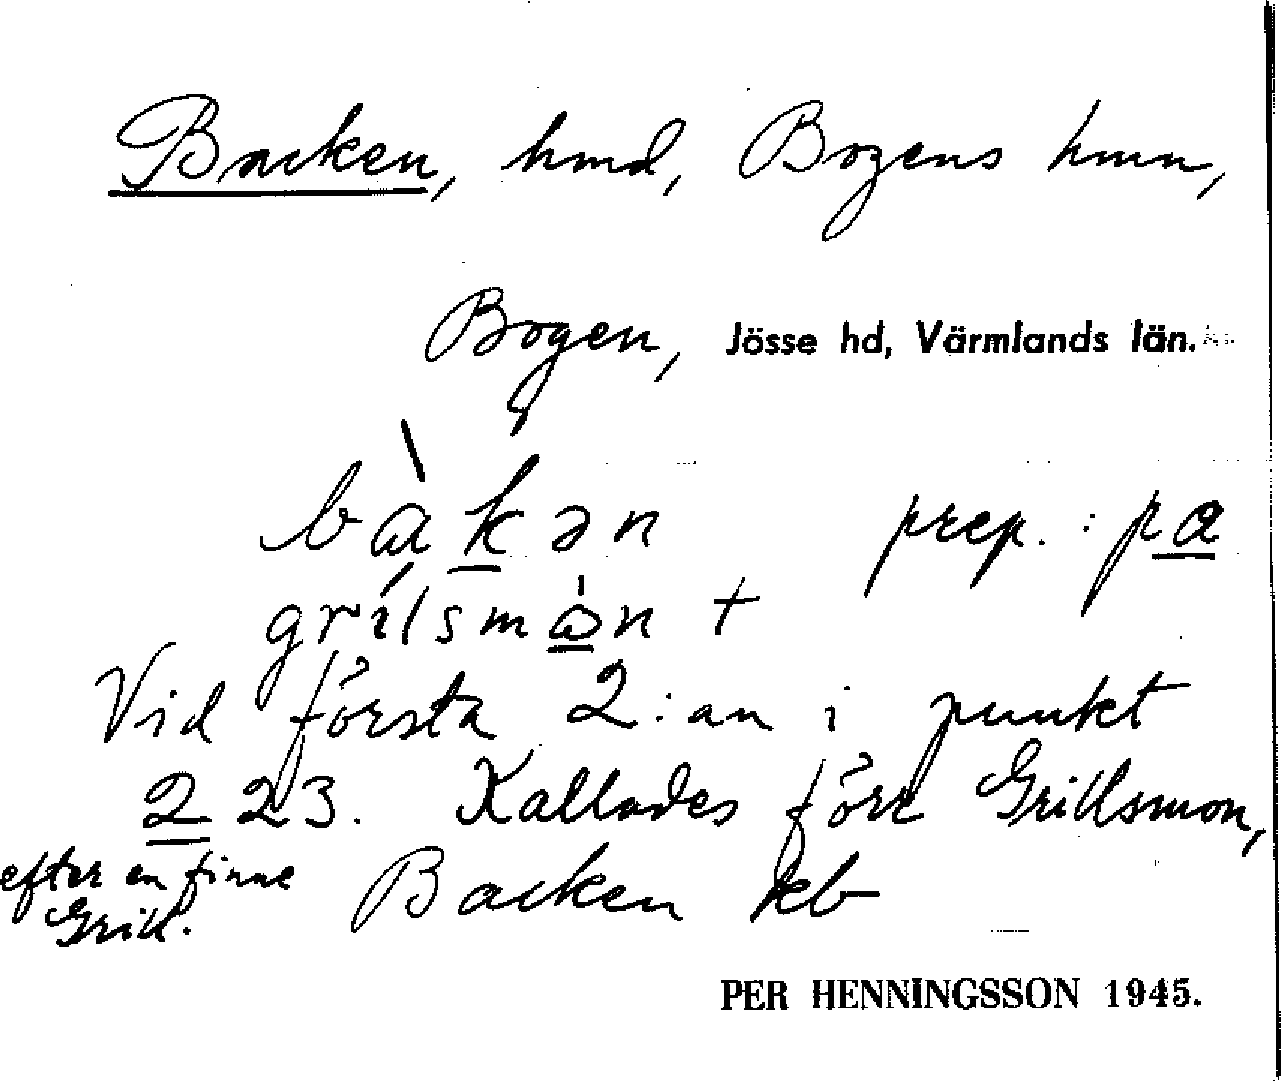 Backen, hmd, Bogens hmn,
Bogen, Jösse hd, Värmlands län.
bàkən prep.: pa
grilsmån +
Vid första 2:an i punkt
2 23. Kallades förr Grillsmon,
efter en finne
Grill.
Backen kb
PER HENNINGSSON 1945.